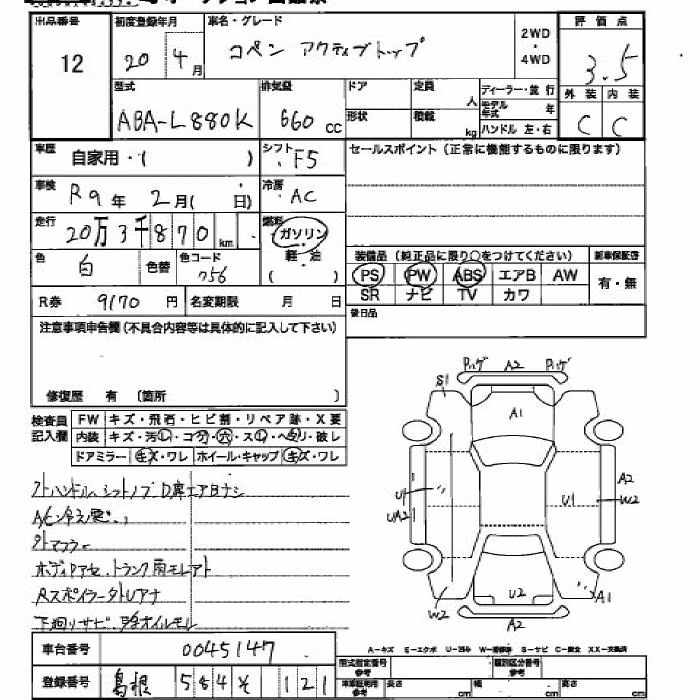 出品番号 初度登録年月 車名・グレード 評価点
12 20年 4月 コペン アクティブトップ 2WD・4WD 3.5
型式 排気量 ドア 定員 人 ディーラー・並行 外装 内装
ABA-L880K 660cc 形状 積載 kg モデル年式 年 ハンドル 左・右 C C
車歴 自家用・( ) シフト F5 セールスポイント(正常に機能するものに限ります)
車検 R9年 2月( 日) 冷房 AC
走行 20万3千870km 燃料 ガソリン 軽・油 ( )
色 白 色替 色コード 056 装備品(純正品に限り○をつけてください) 新車保証書
PS PW ABS エアB AW 有・無
R券 9170円 名変期限 月 日 SR ナビ TV カワ
注意事項申告欄(不具合内容等は具体的に記入して下さい) 後日品
修復歴 有 〔箇所 〕
検査員記入欄 FW キズ・飛石・ヒビ割・リペア跡・X要
内装 キズ・汚レ・コゲ・穴・スレ・ヘタリ・破レ
ドアミラー キズ・ワレ ホイール・キャップ キズ・ワレ
外ハンドル、シフトノブ D席エアBナシ
A/C冷え悪い
外マフラー
ボディPアセ、トランク雨モレアト
Rスポイラー外Uアナ
下廻りサビ
PハゲA2 Pハゲ
S1 A1
U1 UA2 U1 A2 W2
W2 U2 A1
A2
A-キズ E-エクボ U-凹み W-補修跡 S-サビ C-腐食 XX-交換済
車台番号 0045147 型式指定番号 類別区分番号
登録番号 島根 584 そ 121 車庫証明用参考 長さ cm 幅 cm 高さ cm